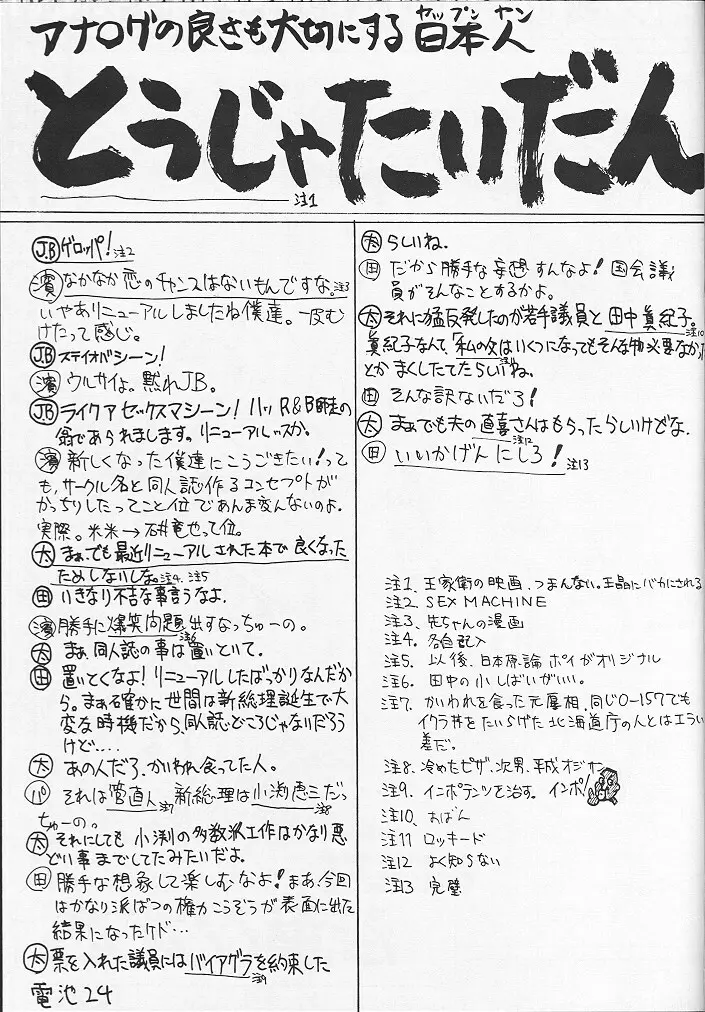 アナログの良さも大切にする日本人
ヤップン ヤン
とうじゃたいだん
注1
J.B ゲロッパ! 注2
濱 なかなか恋のチャンスはないもんですな。注3
いやありニューアルしましたね僕達。一皮む
けたって感じ。
JB ステイオバシーン!
濱 ウルサイよ。黙れJB。
JB ライクア セックスマシーン! ハッ R&B師走の
翁であられまします。リニューアルッスか。
濱 新しくなった僕達にこうごきたい!って
も、サークル名と同人誌作るコンセプトが
がっちりしたってこと位であんま変んないのよ、
実際。米米→石井竜也って位。
太 まぁでも最近リニューアルされた本で良くなった
ためしないしな。注4、注5
田 いきなり不吉な事言うなよ.
濱 勝手に爆笑問題出すなっちゅーの。
注6
太 まぁ、同人誌の事は置いといて.
田 置いとくなよ! リニューアルしたばっかりなんだか
ら。まぁ確かに世間は新総理誕生で大
変な時機だから、同人誌どころじゃないだろう
けど‥‥
太 あの人だろ、かいわれ食ってた人。
パ それは菅直人 新総理は小渕恵三だっ
注7 注8
ちゅーの。
太 それにしても 小渕の多数派工作はかなり悪
どい事までしてたみたいだよ.
田 勝手な想象して楽しむなよ! まあ、今回
はかなり派ばつの権力こうぞうが表面に出た
結果になったケド…
太 票を入れた議員にはバイアグラを約束した
注9
電池24
太 らしいね.
田 だから勝手な妄想すんなよ! 国会議
員がそんなことするかよ。
太 それに猛反発したのが若手議員と田中眞紀子。
注10
眞紀子なんて、「私の父はいくつになってもそんな物必要なかった
注11
とかまくしたててたらしいね.
田 そんな訳ないだろ!
太 まぁでも夫の直喜さんはもらったらしいけどな.
注12
田 いいかげんにしろ! 注13
注1、王家衛の映画、つまんない。王晶にバカにされる
注2、SEX MACHINE
注3、先ちゃんの漫画
注4、各自記入
注5、以後、日本原論ポイがオリジナル
注6、田中の小しばいがいい。
注7、かいわれを食った元厚相、同じO-157でも
イクラ丼をたいらげた北海道庁の人とはエラい
差だ。
注8、冷めたピザ、次男、平成オジサン
注9、インポテンツを治す。インポ!
注10、おばん
注11 ロッキード
注12 よく知らない
注13 完璧